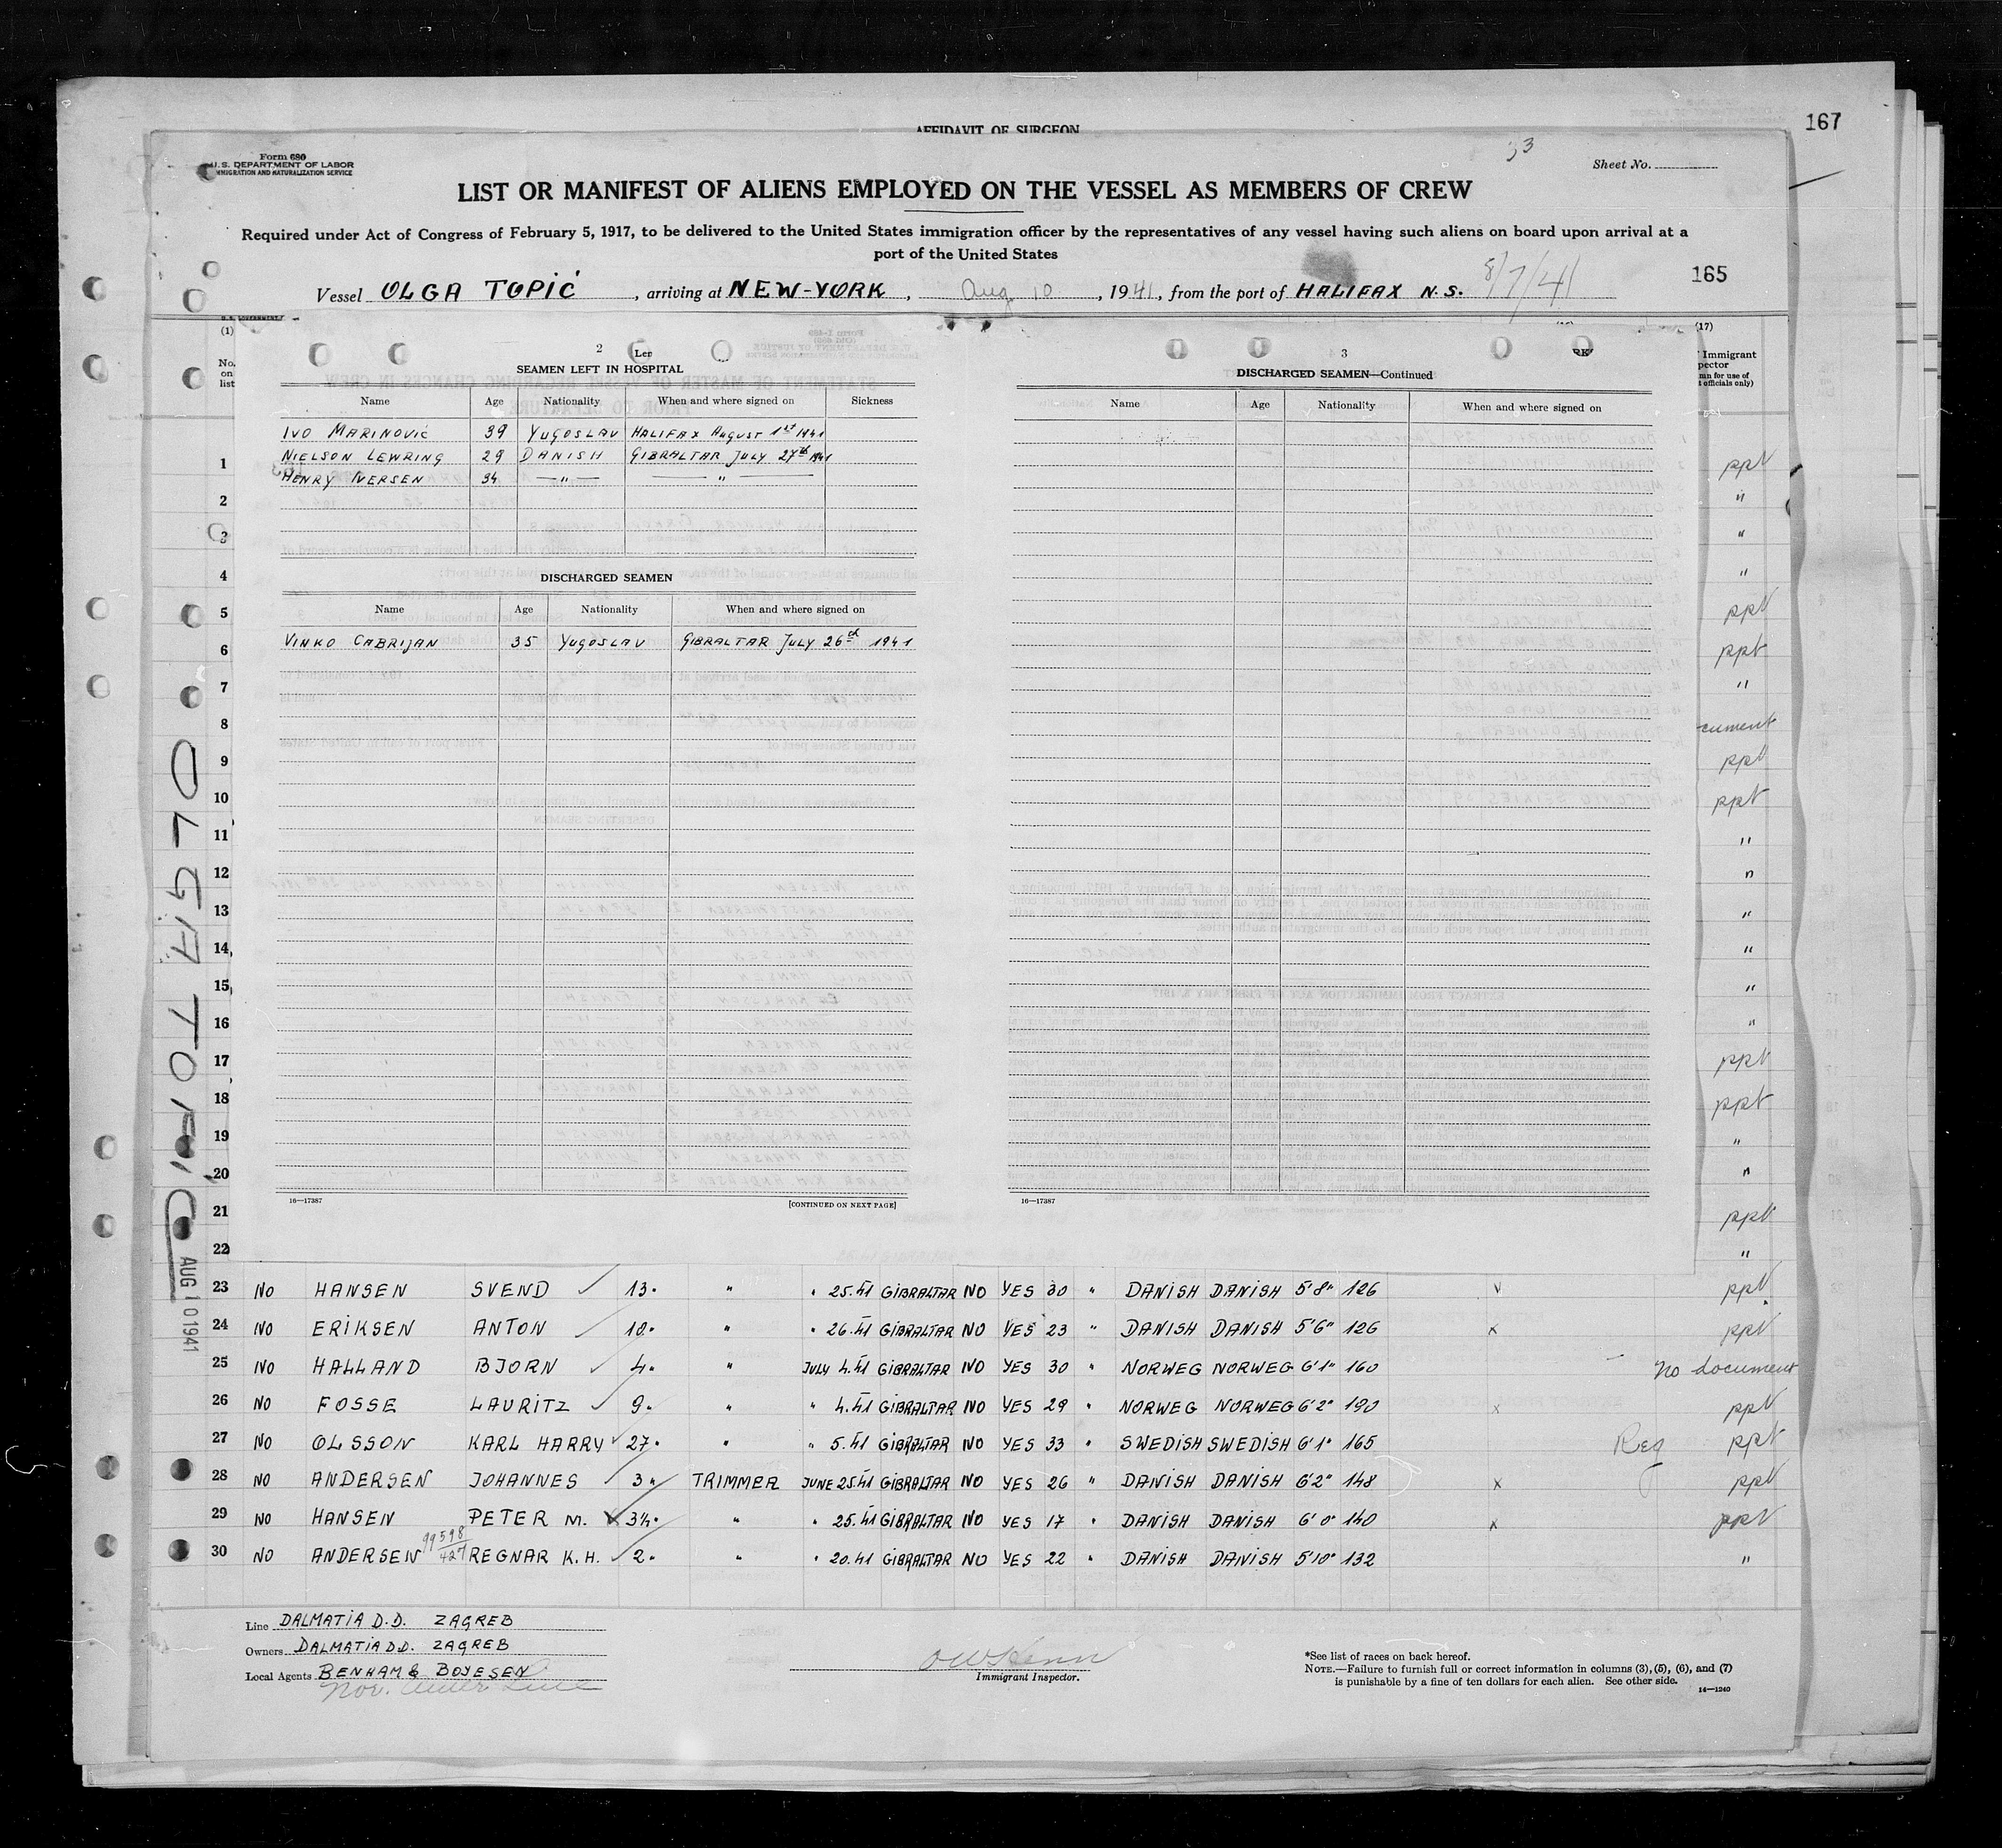 AFFIDAVIT OF SURGEON
167
33
Form 680
U.S. DEPARTMENT OF LABOR
IMMIGRATION AND NATURALIZATION SERVICE
Sheet No.
LIST OR MANIFEST OF ALIENS EMPLOYED ON THE VESSEL AS MEMBERS OF CREW
Required under Act of Congress of February 5, 1917, to be delivered to the United States immigration officer by the representatives of any vessel having such aliens on board upon arrival at a
port of the United States
165
Vessel OLGA TOPIĆ, arriving at NEW-YORK, Aug 10, 1941, from the port of HALIFAX N.S. 8/7/41
(1) (17)
No. on list
Immigrant
2
SEAMEN LEFT IN HOSPITAL
Name Age Nationality When and where signed on Sickness
IVO MARINOVIĆ 39 YUGOSLAV HALIFAX AUGUST 1st 1941
NIELSON LEWRING 29 DANISH GIBRALTAR JULY 27th 1941
HENRY IVERSEN 34 —"— —"—
DISCHARGED SEAMEN
Name Age Nationality When and where signed on
VINKO CABRIJAN 35 YUGOSLAV GIBRALTAR JULY 26th 1941
16—17387 [CONTINUED ON NEXT PAGE]
3
DISCHARGED SEAMEN—Continued
Name Age Nationality When and where signed on
16—17387
1 ppt
2 "
3 "
4 "
5 ppt
6 ppt
7 "
8 cument
9 ppt
10 ppt
11 "
12 "
13 "
14 "
15 "
16 "
17 ppt
18 ppt
19 "
20 "
21 ppt
22 "
OLGA TOPIĆ
AUG 10 1941
23 NO HANSEN SVEND ✓ 13. " " 25.41 GIBRALTAR NO YES 30 " DANISH DANISH 5'8" 126 ppt
24 NO ERIKSEN ANTON ✓ 10. " " 26.41 GIBRALTAR NO YES 23 " DANISH DANISH 5'6" 126 x ppt
25 NO HALLAND BJORN ✓ 4. " JULY 4.41 GIBRALTAR NO YES 30 " NORWEG NORWEG 6'1" 160 No document
26 NO FOSSE LAURITZ ✓ 9. " " 4.41 GIBRALTAR NO YES 29 " NORWEG NORWEG 6'2" 190 x ppt
27 NO OLSSON KARL HARRY ✓ 27. " " 5.41 GIBRALTAR NO YES 33 " SWEDISH SWEDISH 6'1" 165 Reg ppt
28 NO ANDERSEN JOHANNES ✓ 3. TRIMMER JUNE 25.41 GIBRALTAR NO YES 26 " DANISH DANISH 6'2" 148 x ppt
29 NO HANSEN PETER M. 34. " " 25.41 GIBRALTAR NO YES 17 " DANISH DANISH 6'0" 140 x ppt
30 NO ANDERSEN 99598/427 REGNAR K.H. ✓ 2. " " 20.41 GIBRALTAR NO YES 22 " DANISH DANISH 5'10" 132 "
Line DALMATIA D.D. ZAGREB
Owners DALMATIA D.D. ZAGREB
Local Agents BENHAM & BOYESEN
Immigrant Inspector.
*See list of races on back hereof.
NOTE.—Failure to furnish full or correct information in columns (3), (5), (6), and (7)
is punishable by a fine of ten dollars for each alien. See other side.
14—1240